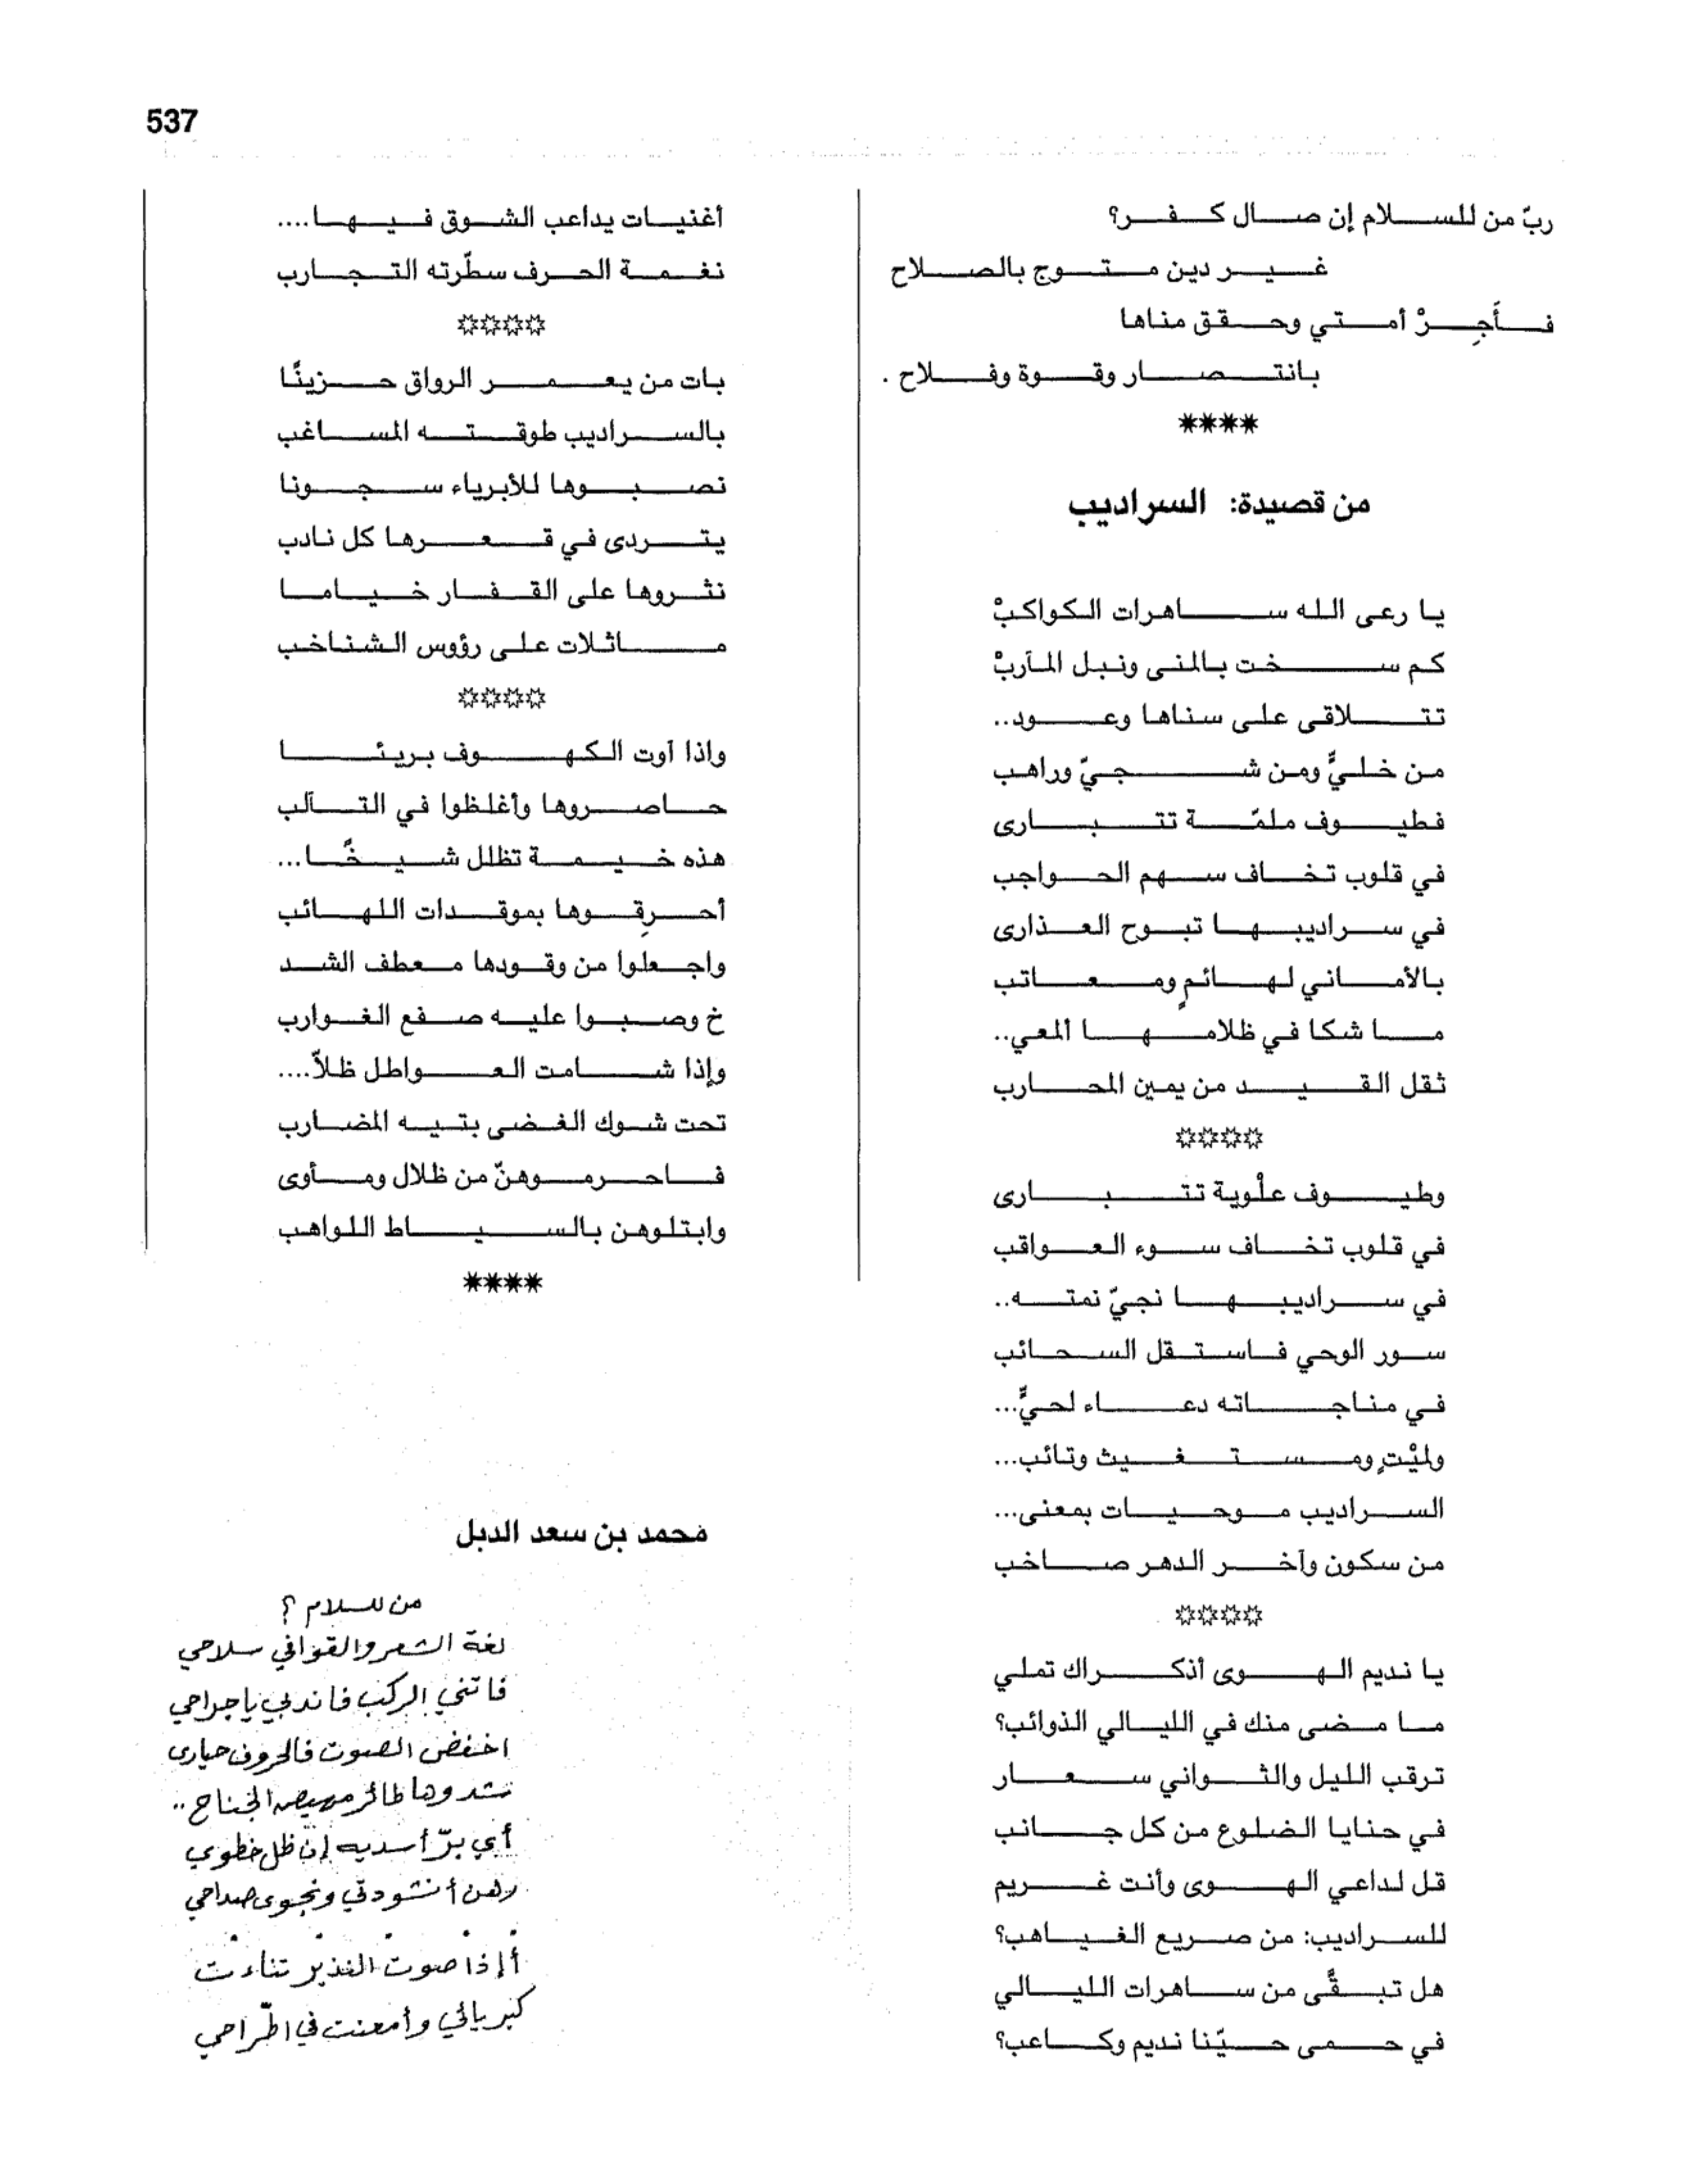 537
ربّ من للسلام إن صال كفر؟
غير دين متوج بالصلاح
فأَجِرْ أمتي وحقق مناها
بانتصار وقوة وفلاح .
****
من قصيدة: السراديب
يا رعى الله ساهرات الكواكبْ
كم سخت بالمنى ونبل المآربْ
تتلاقى على سناها وعود..
من خليٍّ ومن شجيّ وراهب
فطيوف ملمّة تتبارى
في قلوب تخاف سهم الحواجب
في سراديبها تبوح العذارى
بالأماني لهائمٍ ومعاتب
ما شكا في ظلامها ألمعي..
ثقل القيد من يمين المحارب
****
وطيوف علْوية تتبارى
في قلوب تخاف سوء العواقب
في سراديبها نجيّ نمته..
سور الوحي فاستقل السحائب
في مناجاته دعاء لحيٍّ...
ولميْتٍ ومستغيث وتائب...
السراديب موحيات بمعنى...
من سكون وآخر الدهر صاخب
****
يا نديم الهوى أذكراك تملي
ما مضى منك في الليالي الذوائب؟
ترقب الليل والثواني سعار
في حنايا الضلوع من كل جانب
قل لداعي الهوى وأنت غريم
للسراديب: من صريع الغياهب؟
هل تبقَّى من ساهرات الليالي
في حمى حيّنا نديم وكاعب؟
أغنيات يداعب الشوق فيها....
نغمة الحرف سطّرته التجارب
****
بات من يعمر الرواق حزينًا
بالسراديب طوقته المساغب
نصبوها للأبرياء سجونا
يتردى في قعرها كل نادب
نثروها على القفار خياما
ماثلات على رؤوس الشناخب
****
وإذا آوت الكهوف بريئا
حاصروها وأغلظوا في التآلب
هذه خيمة تظلل شيخًا...
أحرِقوها بموقدات اللهائب
واجعلوا من وقودها معطف الشد
خ وصبوا عليه صفع الغوارب
وإذا شامت العواطل ظلاّ....
تحت شوك الغضى بتيه المضارب
فاحرموهنّ من ظلال ومأوى
وابتلوهن بالسياط اللواهب
****
محمد بن سعد الدبل
من للسلام ؟
لغة الشعر والقوافي سلاحي
فاتني الركب فاندبي يا جراحي
اخفض الصوت فالحروف حيارى
شدوها طائر مهيض الجناح ..
أي برّ أسديه إن ظل خطوي
رهن أنشودتي ونجوى صداحي
أإذا صوت النذير تناءت
كبريائي وأمعنت في اطّراحي